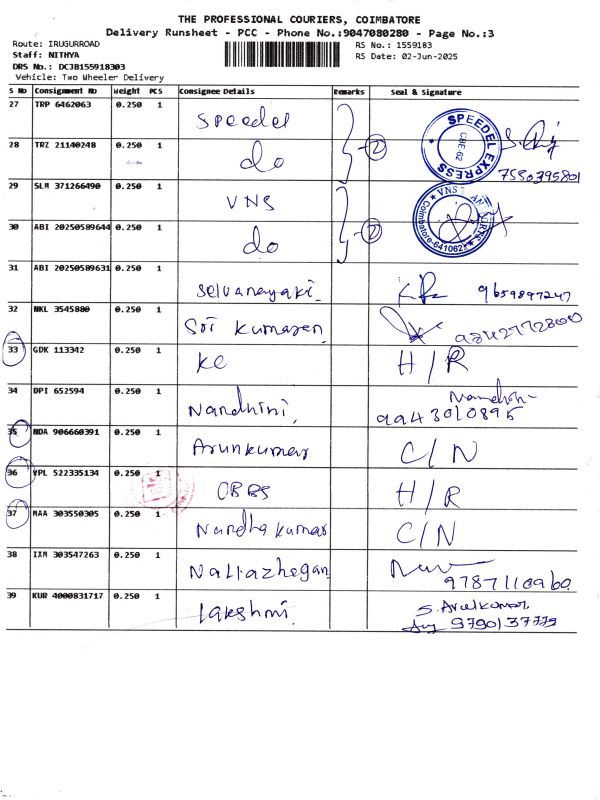 THE PROFESSIONAL COURIERS, COIMBATORE
Delivery Runsheet - PCC - Phone No.:9047080280 - Page No.:3
Route: IRUGURROAD
Staff: NITHYA
DRS No.: DCJB155918303
Vehicle: Two Wheeler Delivery
RS No.: 1559183
RS Date: 02-Jun-2025
S No Consignment No Weight PCS Consignee Details Remarks Seal & Signature
27 TRP 6462063 0.250 1 Speedel
28 TRZ 21140248 0.250 1 do 2 SPEEDEL EXPRESS CBE-62 7550395801
29 SLM 371266490 0.250 1 VNS
30 ABI 20250589644 0.250 1 do 2 VNS Coimbatore-641062
31 ABI 20250589631 0.250 1 Selvanayaki 9659897247
32 NKL 3545880 0.250 1 Sri Kumaren
33 GDK 113342 0.250 1 KC H/R
34 DPI 652594 0.250 1 Nandhini 9943010895
35 NDA 906660391 0.250 1 Arunkumar C/N
36 VPL 522335134 0.250 1 OBBS H/R
37 MAA 303550305 0.250 1 Nandha kumar C/N
38 IXM 303547263 0.250 1 Nallazhegan 9787110960
39 KUR 4000831717 0.250 1 Lakshmi S. Arulkumar,
9790137779